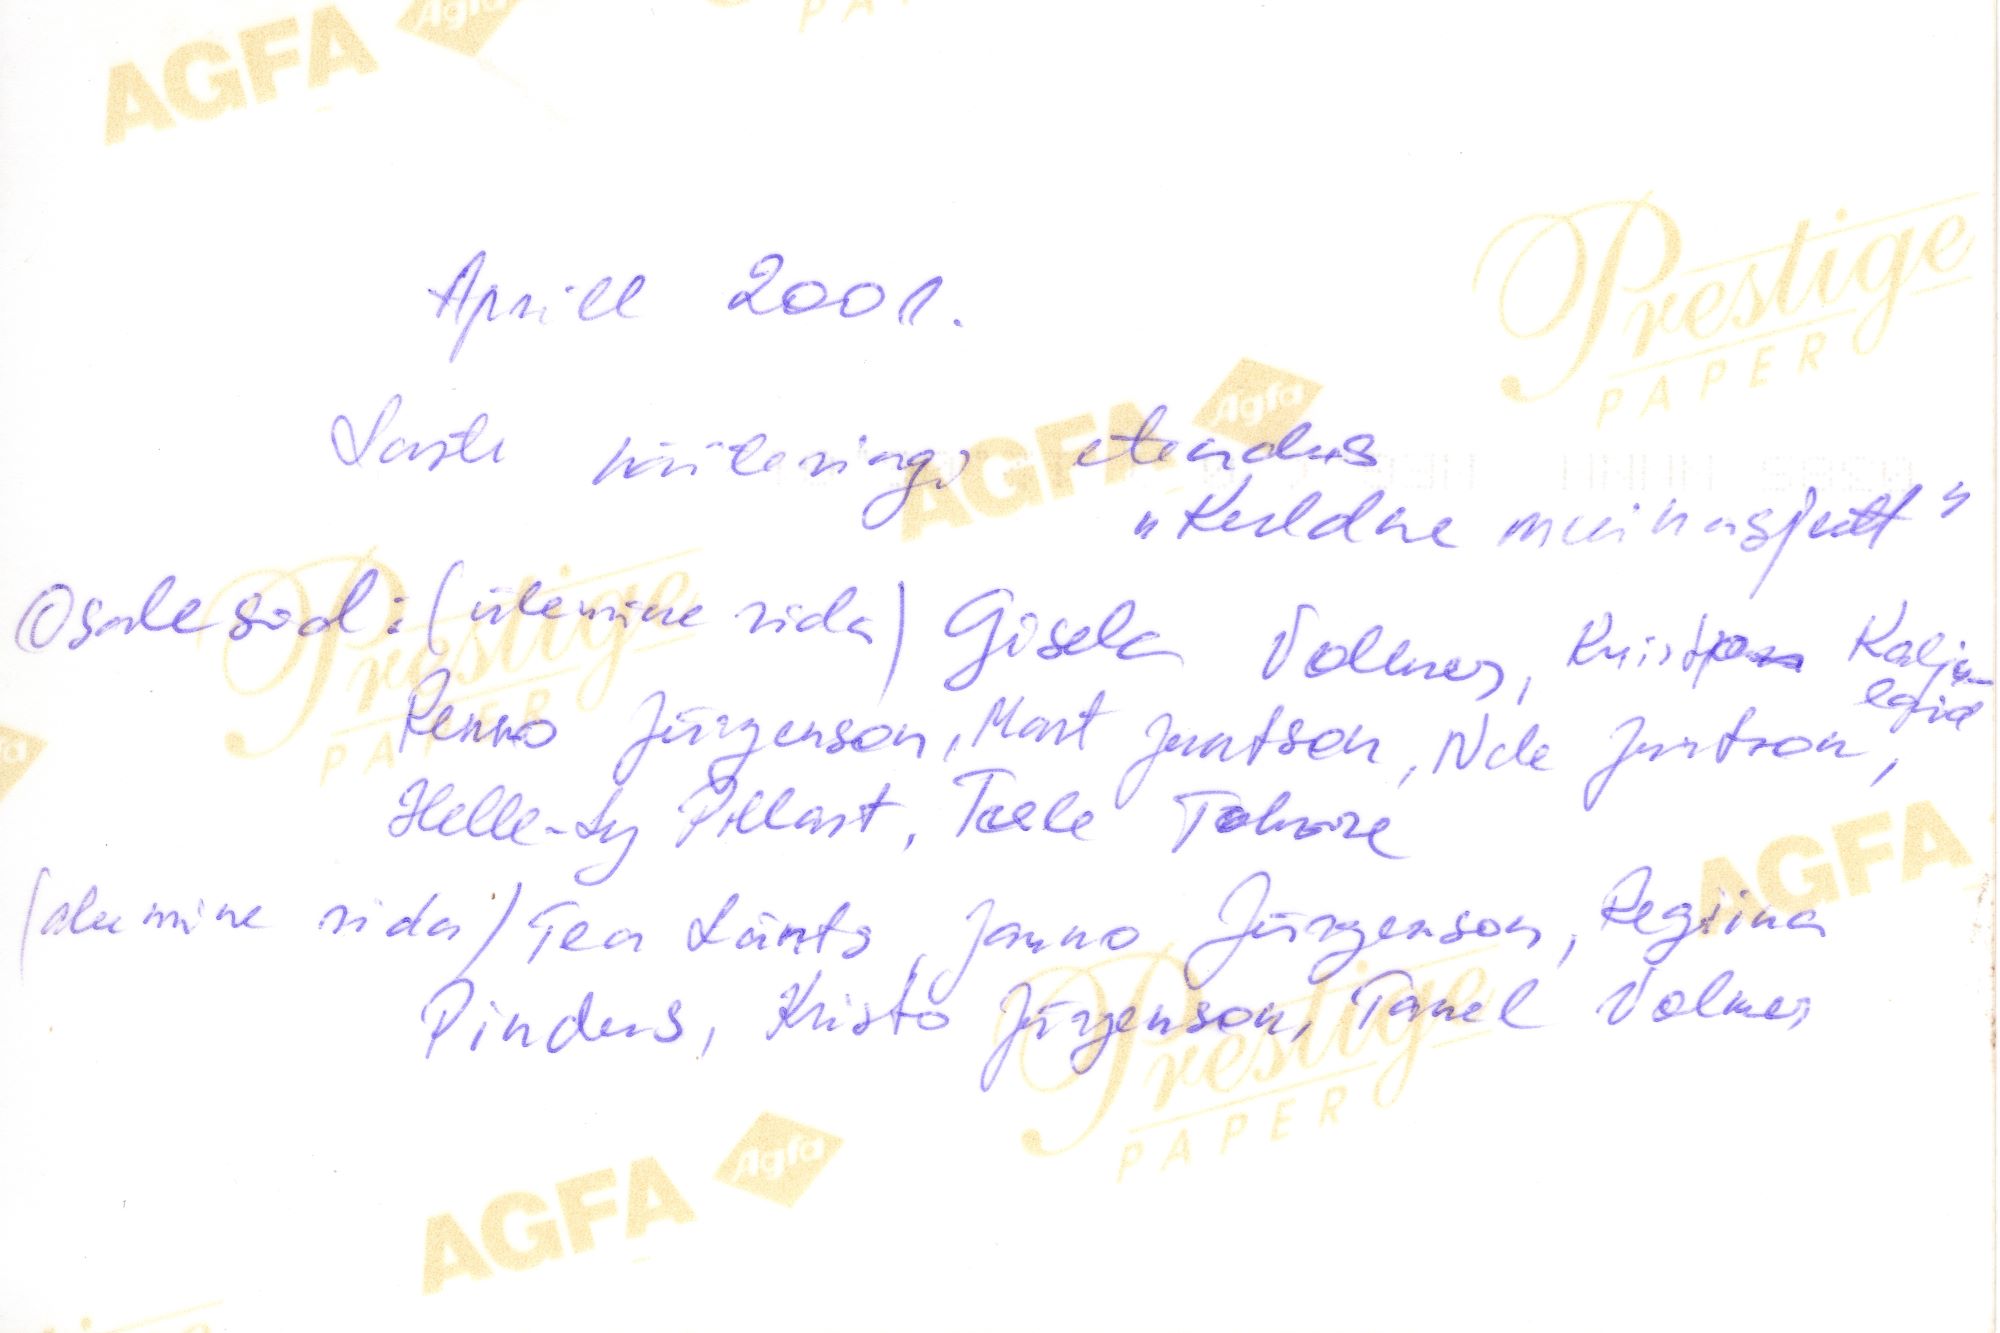 Aprill 2001.
Laste näiteringi etendus
"Kuldne muinasjutt"
Osalesid: (ülemine rida) Gisela Volmer, Kristjan Kalju-
legid
Renno Jürgenson, Mart Juntson, Nele Juntson,
Helle-Ly Pillart, Teele
(alumine rida) Tea Läänts, Janno Jürgenson, Regiina
Pinders, Kristo Jürgenson, Tanel Volmer
AGFA Agfa
PAPER
Prestige
PAPER
AGFA Agfa
Prestige
PAPER
AGFA
Prestige
PAPER
AGFA Agfa